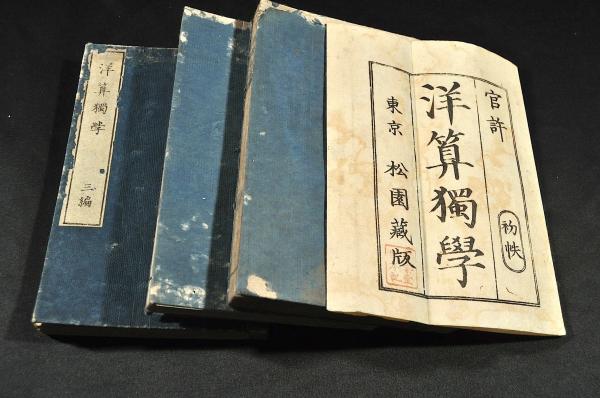 官許
洋算獨學
初帙
東京 松園藏版
洋算獨學 三編